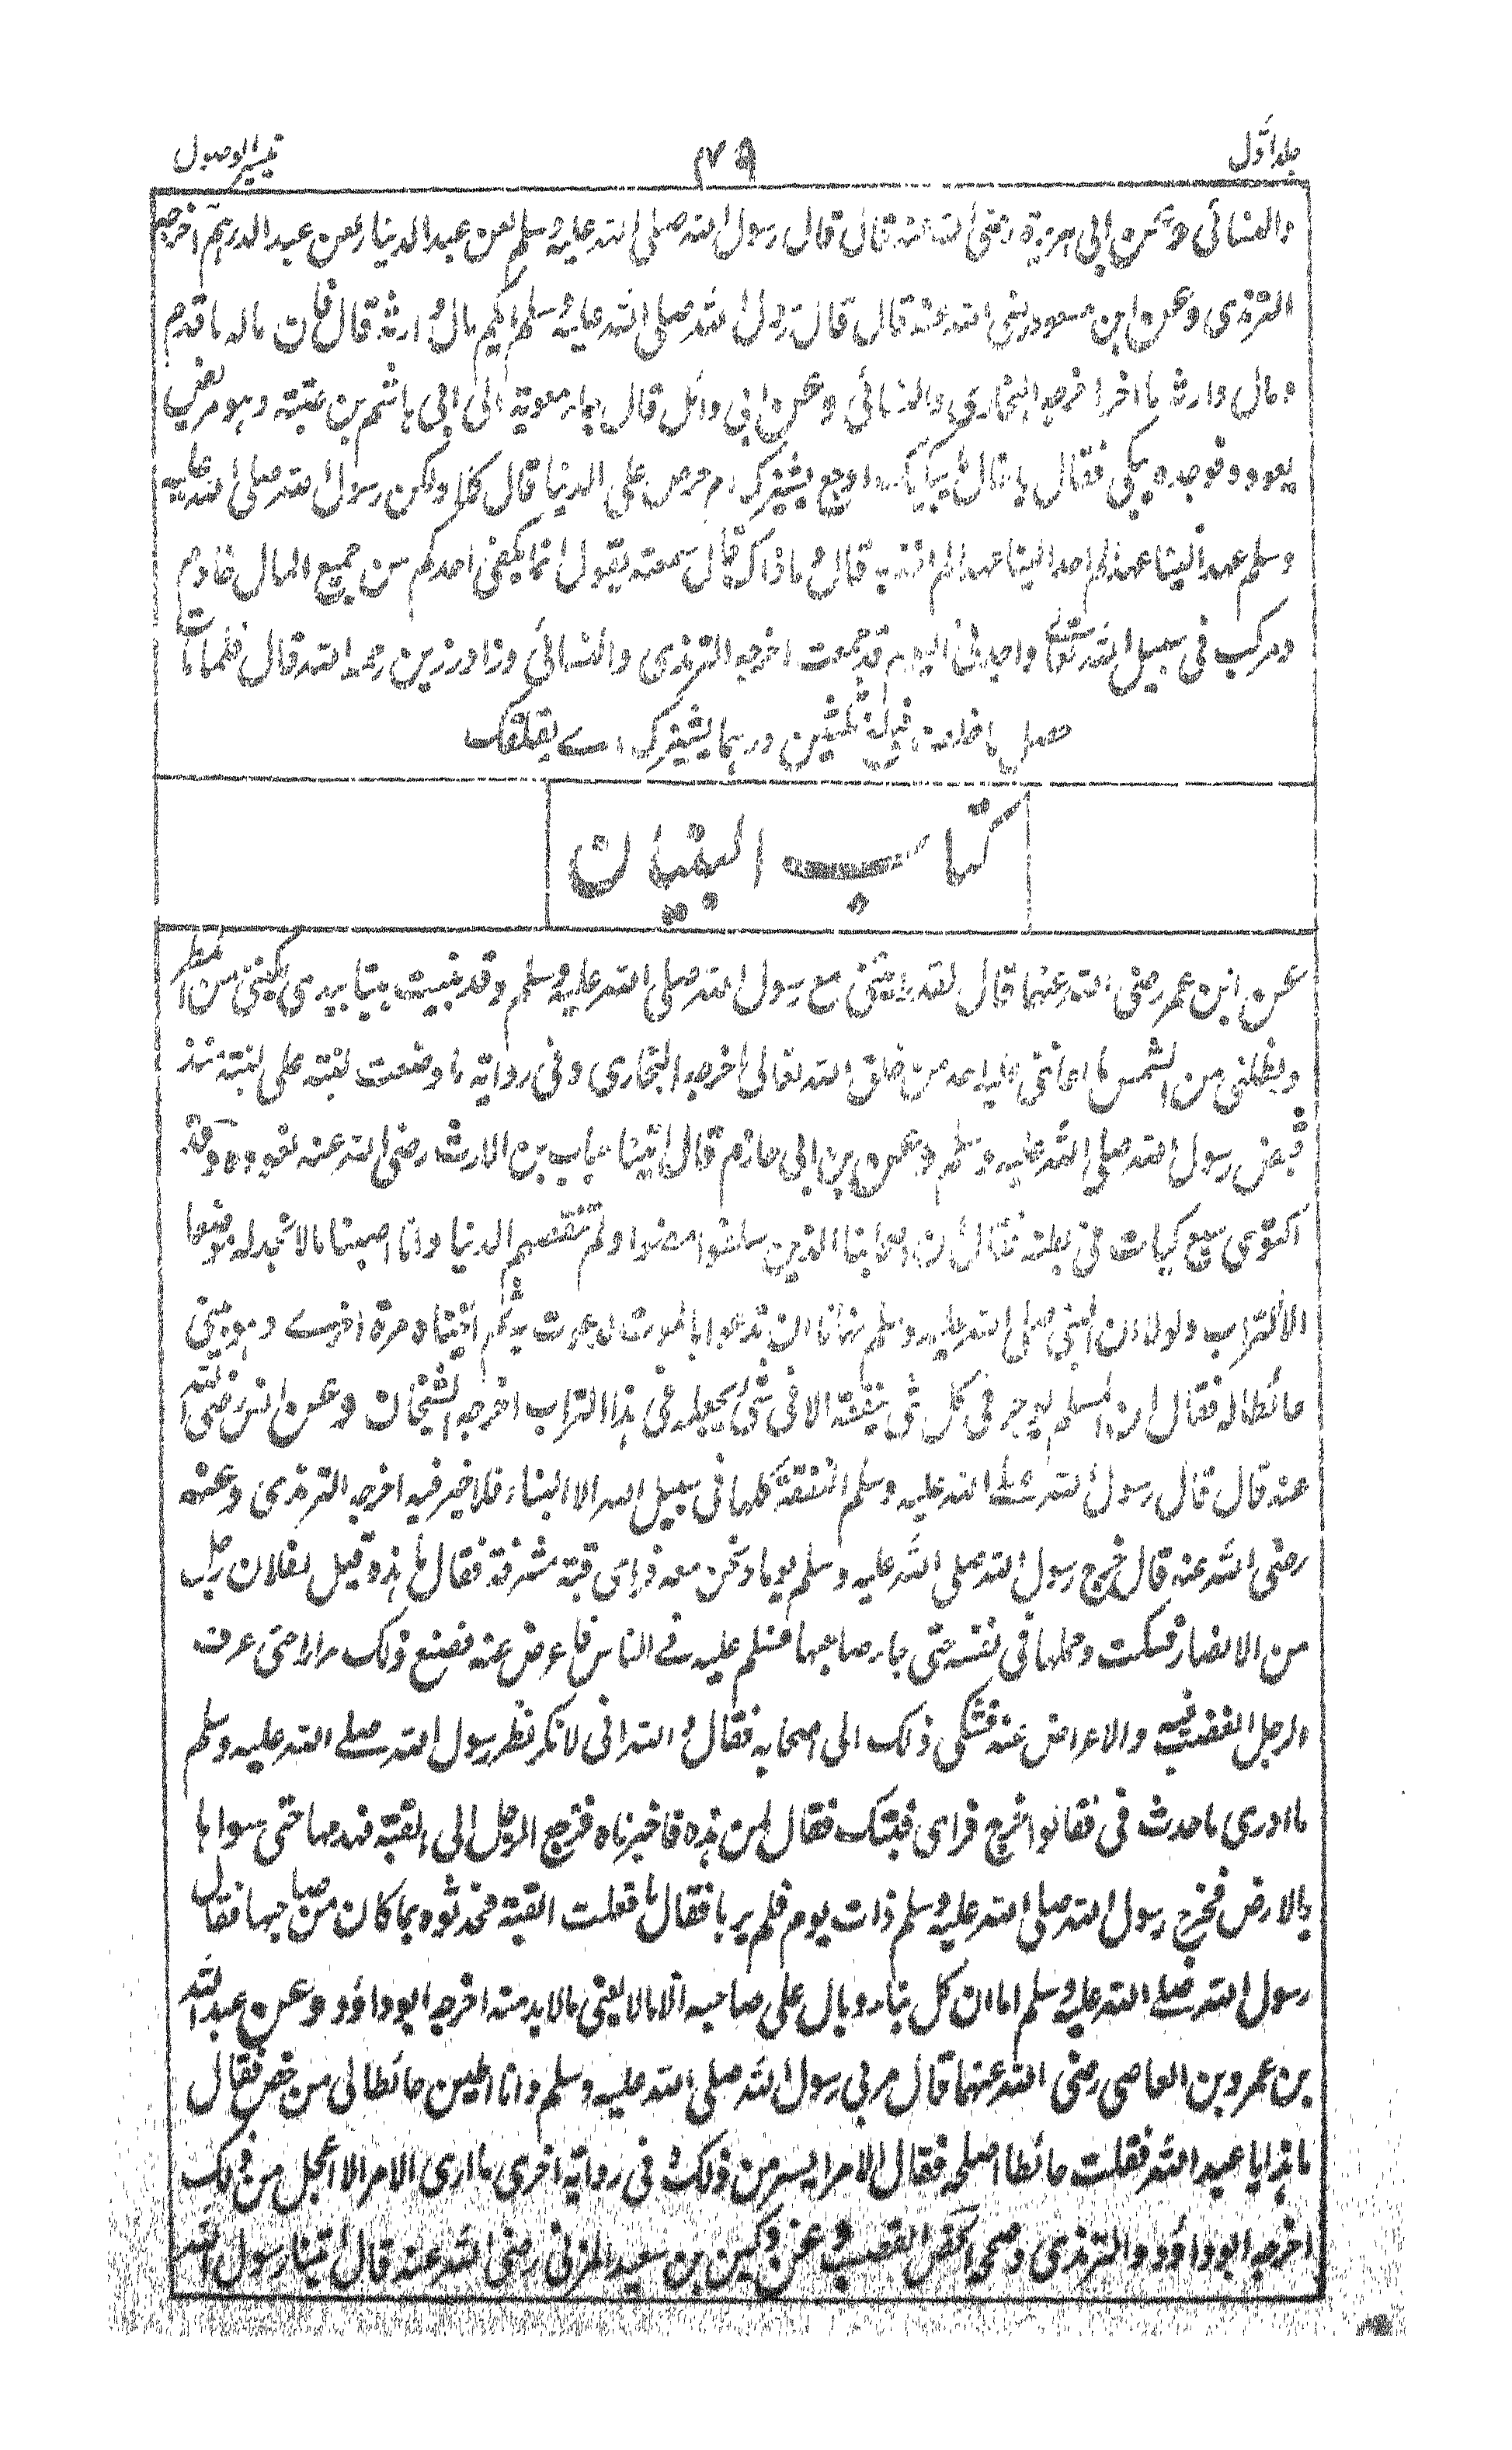 جلد اول ٤٩ تيسير الوصول
والنسائي وعن ابى هريرة رضى الله عنه قال قال رسول الله صلى الله عليه وسلم لعن عبد الدينار لعن عبد الدرهم اخرجه
الترمذى وعن ابن مسعود رضى الله عنه قال قال رسول الله صلى الله عليه وسلم ايكم مال وارثه قال فان ماله ما قدم
ومال وارثه ما اخر اخرجه البخارى والنسائى وعن ابى وائل قال جاء معوية الى ابى هاشم بن عتبة وهو مريض
يعوده فوجده يبكى فقال يا خال ما يبكيك اوجع يشئزك ام حرص على الدنيا قال كلا ولكن رسول الله صلى الله عليه
وسلم عهد الينا عهدا لم اخذ به قال وما ذاك قال سمعته يقول انما يكفى احدكم من جميع المال خادم
ومركب فى سبيل الله تعالى واجدنى اليوم قد جمعت اخرجه الترمذى والنسائى وزاد رزين رحمه الله قال فلما مات
حصل ما خلف فبلغ ثلثين درهما يشئزك اے يقلقك
كتاب البنيان
عن ابن عمر رضى الله عنهما قال لقد رايتنى مع رسول الله صلى الله عليه وسلم وقد بنيت بيتا بيدى يكننى من المطر
ويظلنى من الشمس ما اعاننى عليه احد من خلق الله تعالى اخرجه البخارى وفى رواية ما وضعت لبنة على لبنة منذ
قبض رسول الله صلى الله عليه وسلم وعن بن ابى حازم قال اتينا خباب بن الارث رضى الله عنه نعوده وقد
اكتوى سبع كيات فى بطنه فقال ان اصحابنا الذين سلفوا مضوا ولم تنقصهم الدنيا وانا اصبنا مالا نجد له موضعا
الا التراب ولولا ان النبى صلى الله عليه وسلم نهانا ان ندعوا بالموت لدعوت به ثم اتينا ه مرة اخرے وهو يبنى
حائطا له فقال ان المسلم يوجر فى كل شى ينفقه الا فى شئ يجعله فى هذا التراب اخرجه الشيخان وعن انس رضى الله
عنه قال قال رسول الله صلے الله عليه وسلم النفقة كلها فى سبيل الله الا البناء فلا خير فيه اخرجه الترمذى وعنه
رضى الله عنه قال خرج رسول الله صلى الله عليه وسلم يوما ونحن معه فراى قبة مشرفة فقال ما هذه قيل لفلان رجل
من الانصار فسكت وحملها فى نفسه حتى جاء صاحبها فسلم عليه فے الناس فاعرض عنه فصنع ذلك مرارا حتى عرف
الرجل الغضب فيه والاعراض عنه فشكى ذلك الى اصحابه فقال والله انى لانكر نظر رسول الله صلے الله عليه وسلم
ما ادرى ما حدث فى فقالوا خرج فراى قبتك فقال لمن هذه فاخبرناه فرجع الرجل الى القبة فهدمها حتى سواها
بالارض فخرج رسول الله صلى الله عليه وسلم ذات يوم فلم يرها فقال ما فعلت القبة فحدثوه بما كان من صاحبها فقال
رسول الله صلے الله عليه وسلم اما ان كل بناء وبال على صاحبه الا مالا يعنى مالا بد منه اخرجه ابوداؤد وعن عبد الله
بن عمرو بن العاصى رضى الله عنهما قال مر بى رسول الله صلى الله عليه وسلم وانا اطين حائطا لى من خص فقال
ما هذا يا عبد الله فقلت حائطا اصلحه فقال الامر ايسر من ذلك وفى رواية اخرى ما ارى الامر الا اعجل من ذلك
اخرجه ابوداؤد والترمذى وصححه الخص القصب وعن دكين بن سعيد المزنى رضى الله عنه قال اتينا رسول الله